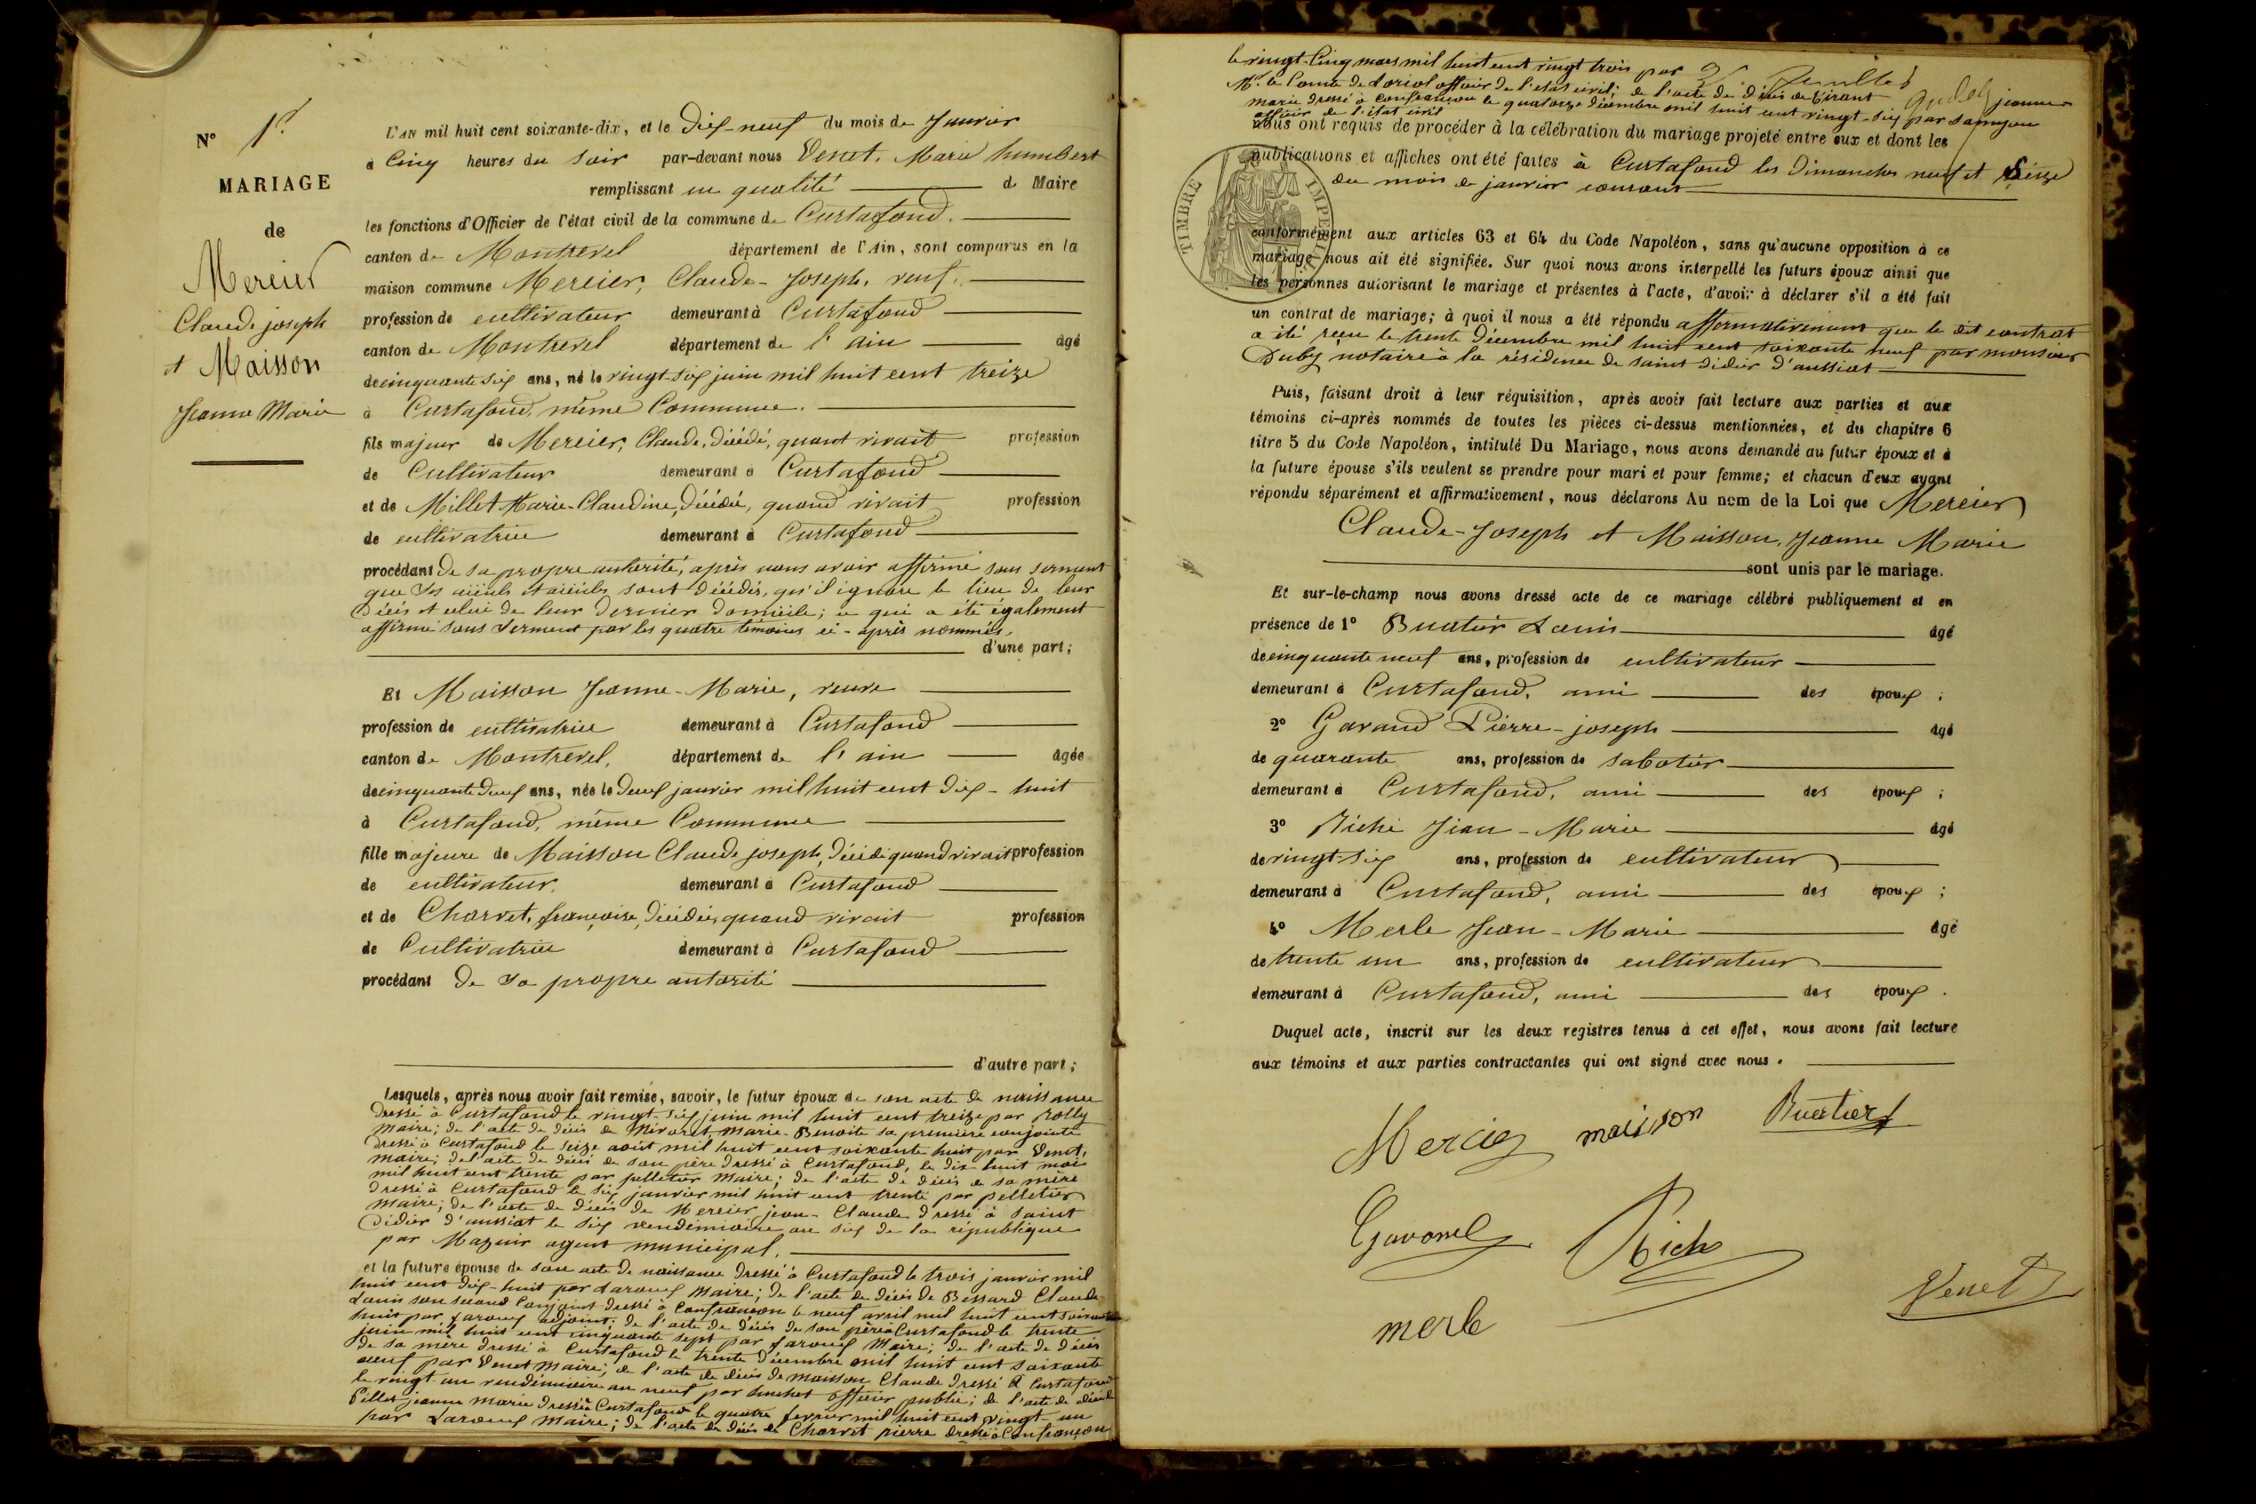 N° 1er
MARIAGE
de
Mercier
Claude joseph
et Maisson
Jeanne Marie
L'AN mil huit cent soixante-dix, et le Dix-neuf du mois de Janvier
à Cinq heures du soir par-devant nous Venet, Marie humbert
remplissant en qualité de Maire
les fonctions d'Officier de l'état civil de la commune de Curtafond.
canton de Montrevel département de l'Ain, sont comparus en la
maison commune Mercier, Claude-Joseph, veuf,
profession de cultivateur demeurant à Curtafond
canton de Montrevel département de l'ain âgé
de cinquante six ans, né le vingt-six juin mil huit cent treize
à Curtafond, même Commune.
fils majeur de Mercier, Claude, décédé, quand vivait profession
de Cultivateur demeurant à Curtafond
et de Millet Marie-Claudine, Décédée, quand vivait profession
de cultivatrice demeurant à Curtafond
procédant de sa propre autorité, après nous avoir affirmé sous serment
que ses aïeuls et aïeules sont décédés, qu'il ignore le lieu de leur
décès et celui de leur dernier domicile; ce qui a été également
affirmé sous serment par les quatre témoins ci-après nommés,
d'une part;
Et Maisson Jeanne-Marie, veuve
profession de cultivatrice demeurant à Curtafond
canton de Montrevel, département de l'ain âgée
de cinquante deux ans, née le deux janvier mil huit cent dix-huit
à Curtafond, même Commune
fille majeure de Maisson Claude Joseph, décédé quand vivait profession
de cultivateur demeurant à Curtafond
et de Charvet, françoise, Décédée, quand vivait profession
de Cultivatrice demeurant à Curtafond
procédant de sa propre autorité
d'autre part;
Lesquels, après nous avoir fait remise, savoir, le futur époux de son acte de naissance
dressé à Curtafond le vingt-six juin mil huit cent treize par
maire; de l'acte de décès de marie-Benoite sa première conjointe
dressé à Curtafond le seize août mil huit cent soixante huit par Venet,
maire; de l'acte de décès de son père dressé à Curtafond, le dix huit mai
mil huit cent trente par pelletier maire; de l'acte de décès de sa mère
dressé à Curtafond le six janvier mil huit cent trente par pelletier
maire; de l'acte de décès de Mercier jean-Claude dressé à saint
Didier d'aussiat le six vendémiaire an six de la république
par Mazuir agent municipal.
et la future épouse de son acte de naissance dressé à Curtafond le trois janvier mil
huit cent dix-huit par maire; de l'acte de décès de Bessard Claude
Louis son second Conjoint dressé à Confrançon le neuf avril mil huit cent soixante
huit par adjoint; de l'acte de décès de son père à Curtafond le trente
juin mil huit cent cinquante sept par maire; de l'acte de décès
de sa mère dressé à Curtafond le trente décembre mil huit cent soixante
neuf par Venet maire; de l'acte de décès de maisson Claude dressé à Curtafond
le vingt un vendémiaire an neuf par officier public; de l'acte de décès de
jeanne marie dressé à Curtafond le quatre fevrier mil huit cent vingt-un
par maire; de l'acte de décès de Charvet pierre dressé à Confrançon
le vingt-Cinq mars mil huit cent vingt trois par
Mr. le Comte de Loriol officier de l'état civil; de l'acte de décès de jeanne
marie dressé à Confrançon le quatorze décembre mil huit cent vingt-six par
officier de l'état civil
nous ont requis de procéder à la célébration du mariage projeté entre eux et dont les
publications et affiches ont été faites à Curtafond les dimanches neuf et Seize
du mois de janvier courant
TIMBRE IMPERIAL
conformément aux articles 63 et 64 du Code Napoléon, sans qu'aucune opposition à ce
mariage nous ait été signifiée. Sur quoi nous avons interpellé les futurs époux ainsi que
les personnes autorisant le mariage et présentes à l'acte, d'avoir à déclarer s'il a été fait
un contrat de mariage; à quoi il nous a été répondu affirmativement que le dit contrat
a été reçu le trente Décembre mil huit cent soixante neuf par monsieur
Duby notaire à la résidence de saint didier d'aussiat
Puis, faisant droit à leur réquisition, après avoir fait lecture aux parties et aux
témoins ci-après nommés de toutes les pièces ci-dessus mentionnées, et du chapitre 6
titre 5 du Code Napoléon, intitulé Du Mariage, nous avons demandé au futur époux et à
la future épouse s'ils veulent se prendre pour mari et pour femme; et chacun d'eux ayant
répondu séparément et affirmativement, nous déclarons Au nom de la Loi que Mercier
Claude-Joseph et Maisson, Jeanne Marie
sont unis par le mariage.
Et sur-le-champ nous avons dressé acte de ce mariage célébré publiquement et en
présence de 1° Buatier Louis âgé
de cinquante neuf ans, profession de cultivateur
demeurant à Curtafond, ami des époux;
2° Gavand Pierre-joseph âgé
de quarante ans, profession de sabotier
demeurant à Curtafond, ami des époux;
3° Riche Jean-Marie âgé
de vingt-six ans, profession de cultivateur
demeurant à Curtafond, ami des époux;
4° Merle Jean-Marie âgé
de trente un ans, profession de cultivateur
demeurant à Curtafond, ami des époux.
Duquel acte, inscrit sur les deux registres tenus à cet effet, nous avons fait lecture
aux témoins et aux parties contractantes qui ont signé avec nous.
Mercier maisson Buatier
Gavand Riche
Venet
merle